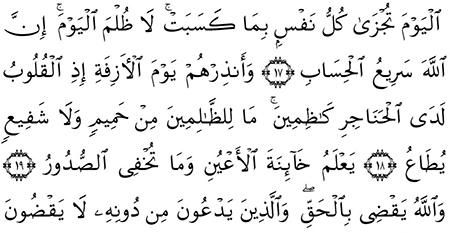 ٱلْيَوْمَ تُجْزَىٰ كُلُّ نَفْسٍۭ بِمَا كَسَبَتْ ۚ لَا ظُلْمَ ٱلْيَوْمَ ۚ إِنَّ
ٱللَّهَ سَرِيعُ ٱلْحِسَابِ ﴿١٧﴾ وَأَنذِرْهُمْ يَوْمَ ٱلْأَزِفَةِ إِذِ ٱلْقُلُوبُ
لَدَى ٱلْحَنَاجِرِ كَـٰظِمِينَ ۚ مَا لِلظَّـٰلِمِينَ مِنْ حَمِيمٍ وَلَا شَفِيعٍ
يُطَاعُ ﴿١٨﴾ يَعْلَمُ خَآئِنَةَ ٱلْأَعْيُنِ وَمَا تُخْفِى ٱلصُّدُورُ ﴿١٩﴾
وَٱللَّهُ يَقْضِى بِٱلْحَقِّ ۖ وَٱلَّذِينَ يَدْعُونَ مِن دُونِهِۦ لَا يَقْضُونَ